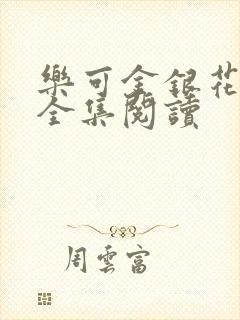 樂可金銀花
全集閱讀
周雲富